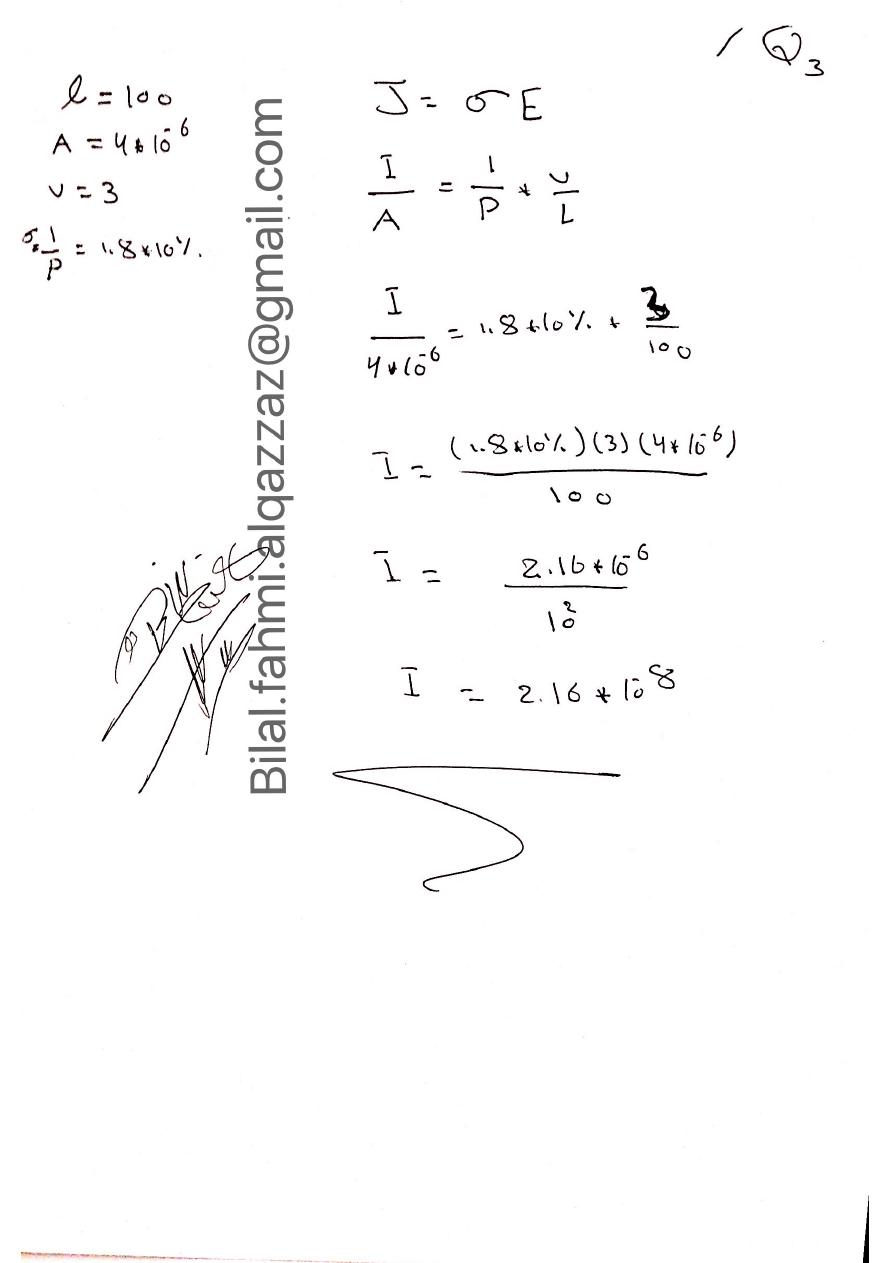 / Q₃
l = 100
A = 4*10⁻⁶
v = 3
σ = 1/P = 1.8*10%.
J = σ E
I/A = 1/P * v/L
I/4*10⁻⁶ = 1.8*10%. * 3/100
I = (1.8*10%.)(3)(4*10⁻⁶)/100
I = 2.16*10⁻⁶/10²
I = 2.16*10⁻⁸
Bilal.fahmi.alqazzaz@gmail.com